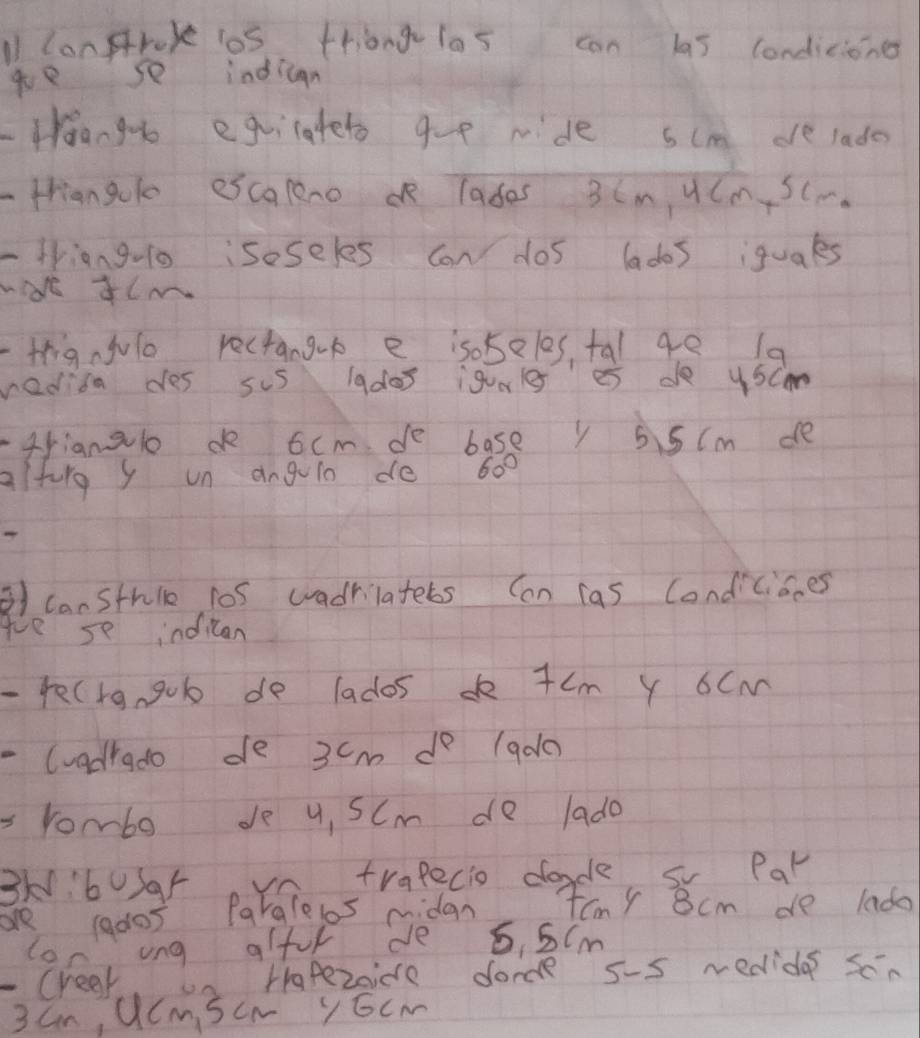 1) Construye los triangulos con las condiciones
que se indican
- triangulo equilatero que mide 5cm de lado
- triangulo escaleno de lados 3cm, 4cm y 5cm.
- triangulo isoseles con dos lados iguales
mide 7cm.
- triangulo rectangulo e isoseles, tal qe la
medida des sus lados iguales es de 4,5cm
- triangulo de 6cm de base y 5,5cm de
altura y un angulo de 60°
-
2) construye los cuadrilateros con las condiciones
que se indican
- rectangulo de lados de 7cm y 6cm
- Cuadrado de 3cm de lado
- rombo de 4,5cm de lado
3) Dibujar un trapecio donde su Par
de lados Paralelos midan 7cm y 8cm de lado
con una altur de 5,5cm
- Creer un trapezoide donde sus medidas son
3cm, 4cm, 5cm y 6cm